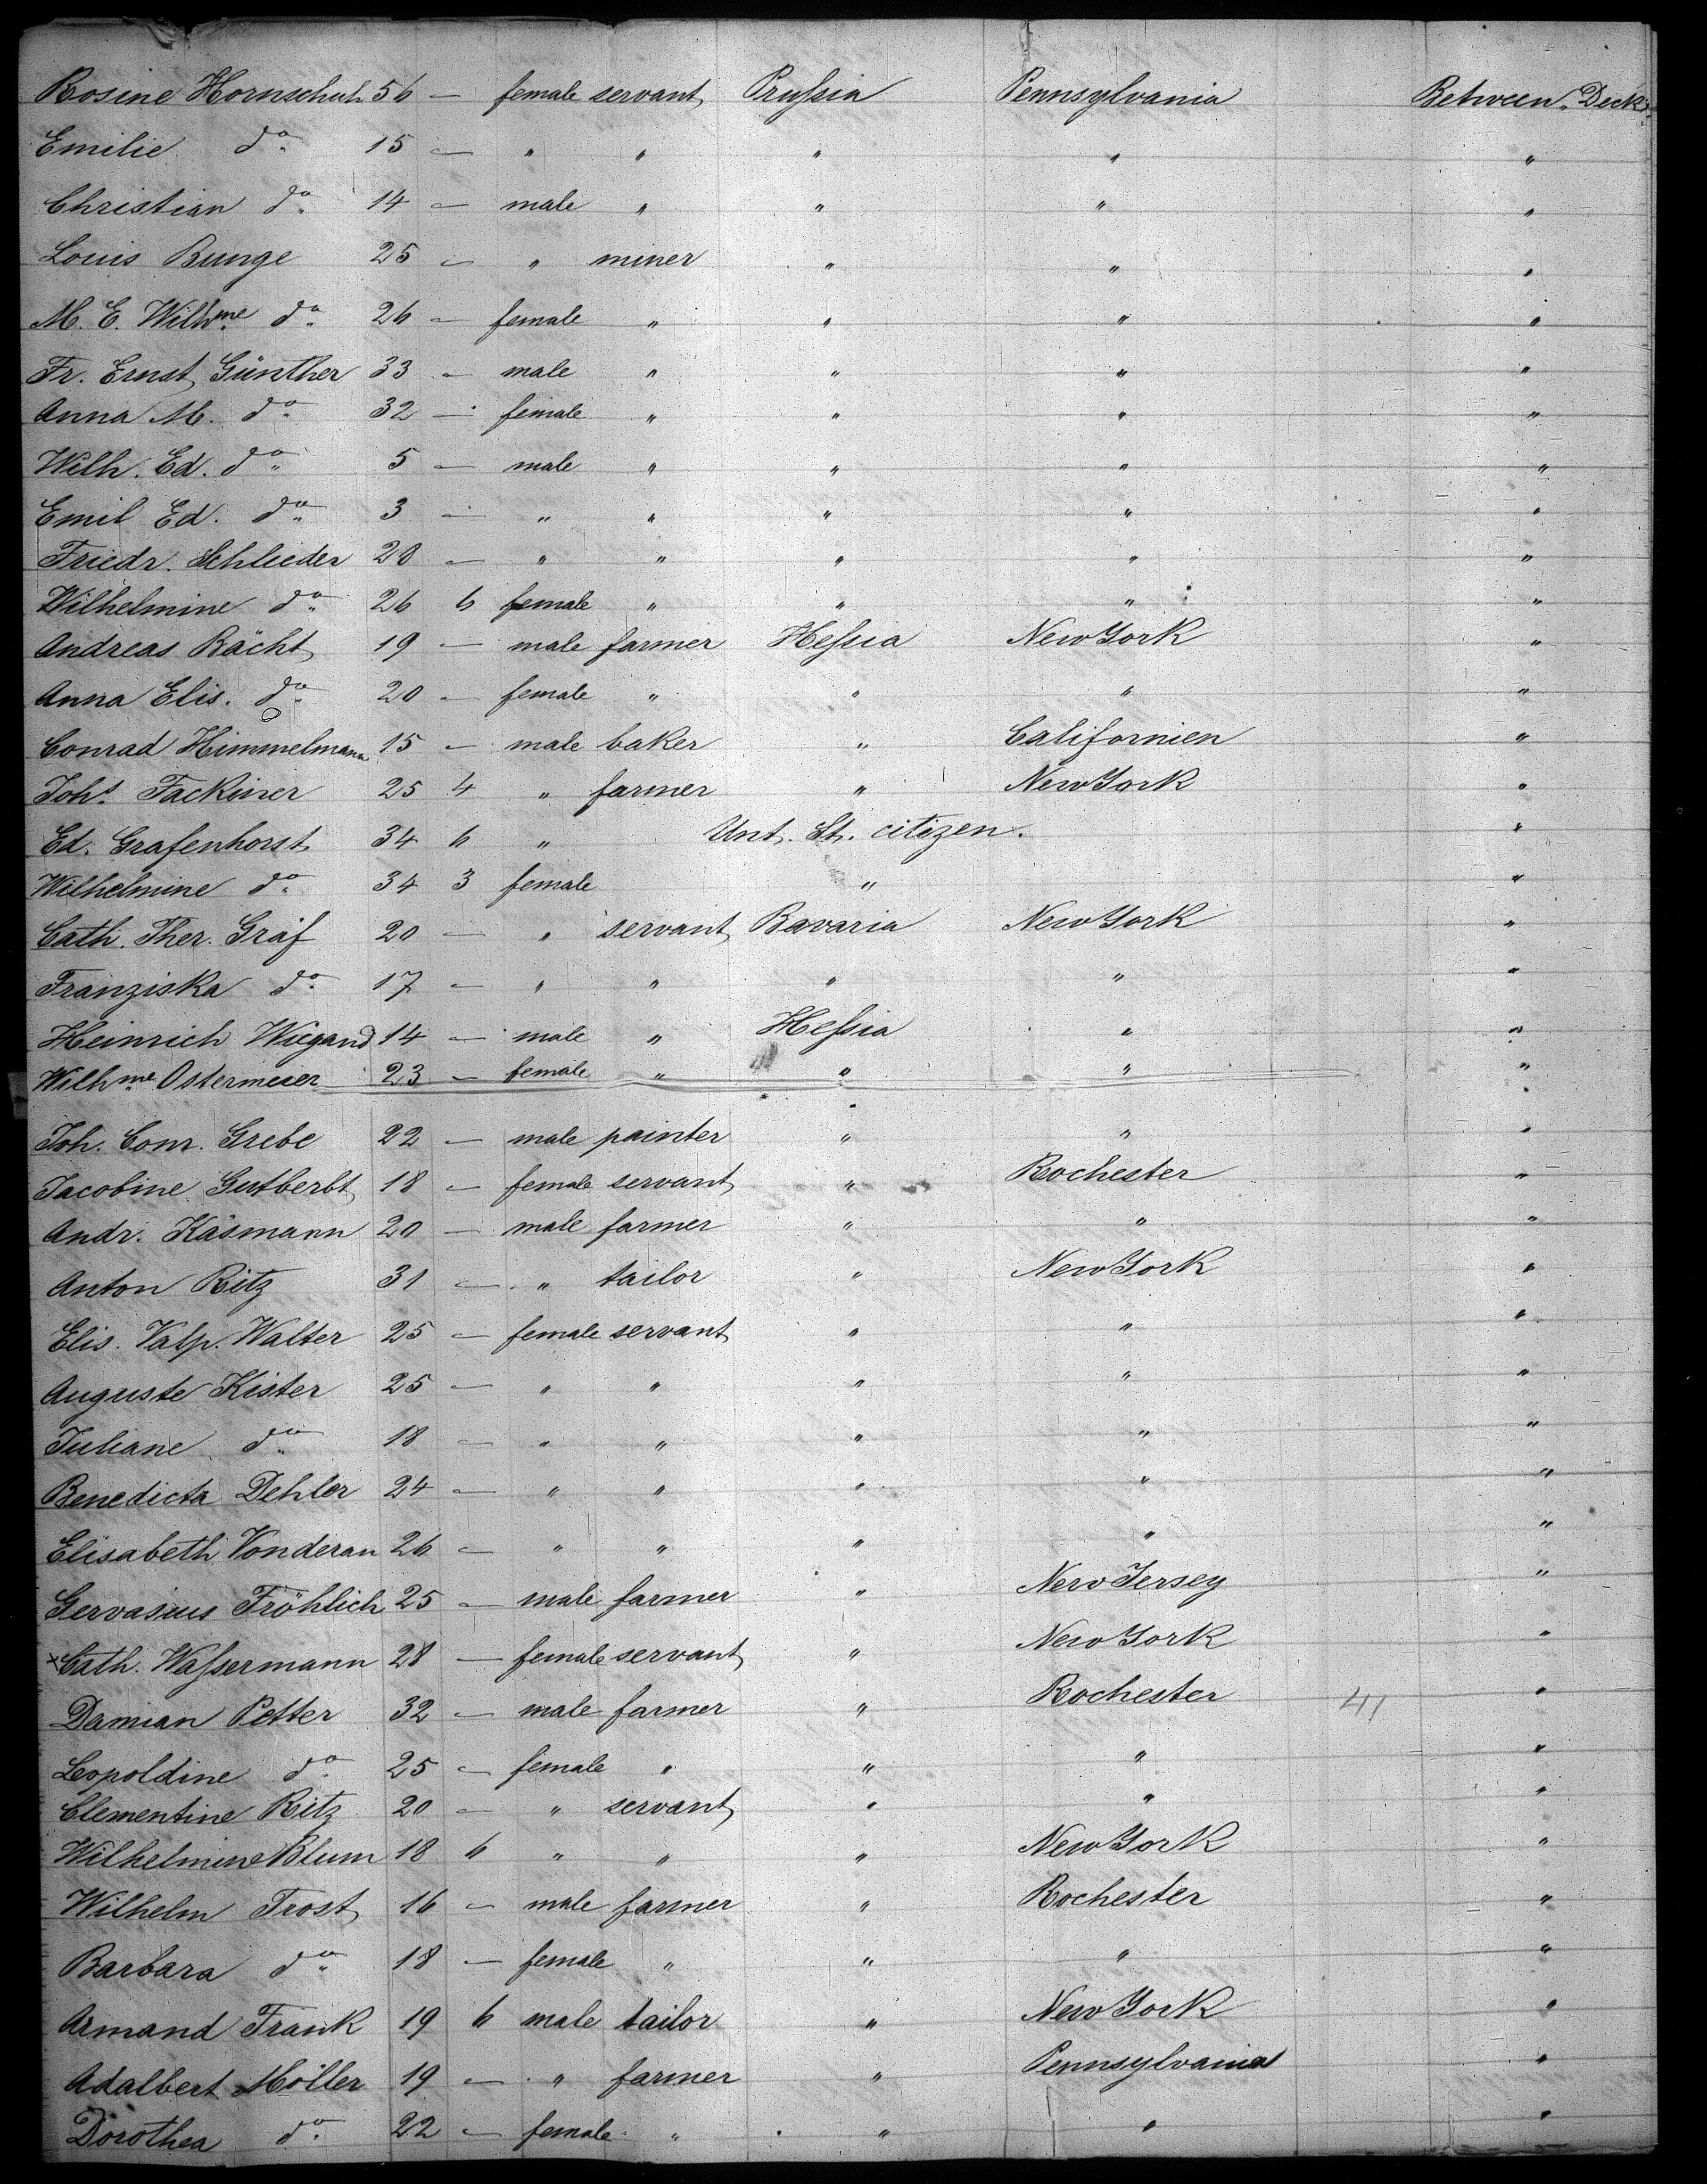 Rosine Hornschuh 56 — female servant Prußia Pennsylvania Between Deck
Emilie do. 15 — " " " " "
Christian do. 14 — male " " " "
Louis Bunge 25 — " miner " " "
M. E. Wilhme do. 26 — female " " " "
Fr. Ernst Günther 33 — male " " " "
Anna M. do. 32 — female " " " "
Wilh. Ed. do. 5 — male " " " "
Emil Ed. do. 3 — " " " " "
Friedr. Schlieder 28 — " " " " "
Wilhelmine do. 26 6 female " " " "
Andreas Rächt 19 — male farmer Heßia New York "
Anna Elis. do. 20 — female " " " "
Conrad Himmelmann 15 — male baker " Californien "
Johs. Fackiner 25 4 " farmer " New York "
Ed. Grafenhorst 34 6 " Unt. St. citizen. "
Wilhelmine do. 34 3 female " "
Cath. Ther. Gräf 20 — " servant Bavaria New York "
Franziska do. 17 — " " " " "
Heinrich Wiegand 14 — male " Heßia " "
Wilhme Ostermeier 23 — female " " " "
Joh. Conr. Grebe 22 — male painter " " "
Jacobine Gutberlt 18 — female servant " Rochester "
Andr. Käsmann 20 — male farmer " " "
Anton Ritz 31 — " tailor " New York "
Elis. Valp. Walter 25 — female servant " " "
Auguste Kister 25 — " " " " "
Juliane do. 18 — " " " " "
Benedicta Dehler 24 — " " " " "
Elisabeth Vonderau 26 — " " " " "
Gervasius Fröhlich 25 — male farmer " New Jersey "
x Cath. Waßermann 28 — female servant " New York "
Damian Petter 32 — male farmer " Rochester 41 "
Leopoldine do. 25 — female " " " "
Clementine Ritz 20 — " servant " " "
Wilhelmine Blum 18 6 " " " New York "
Wilhelm Trost 16 — male farmer " Rochester "
Barbara do. 18 — female " " " "
Armand Frank 19 6 male tailor " New York "
Adalbert Möller 19 — " farmer " Pennsylvania "
Dorothea do. 22 — female " " " "